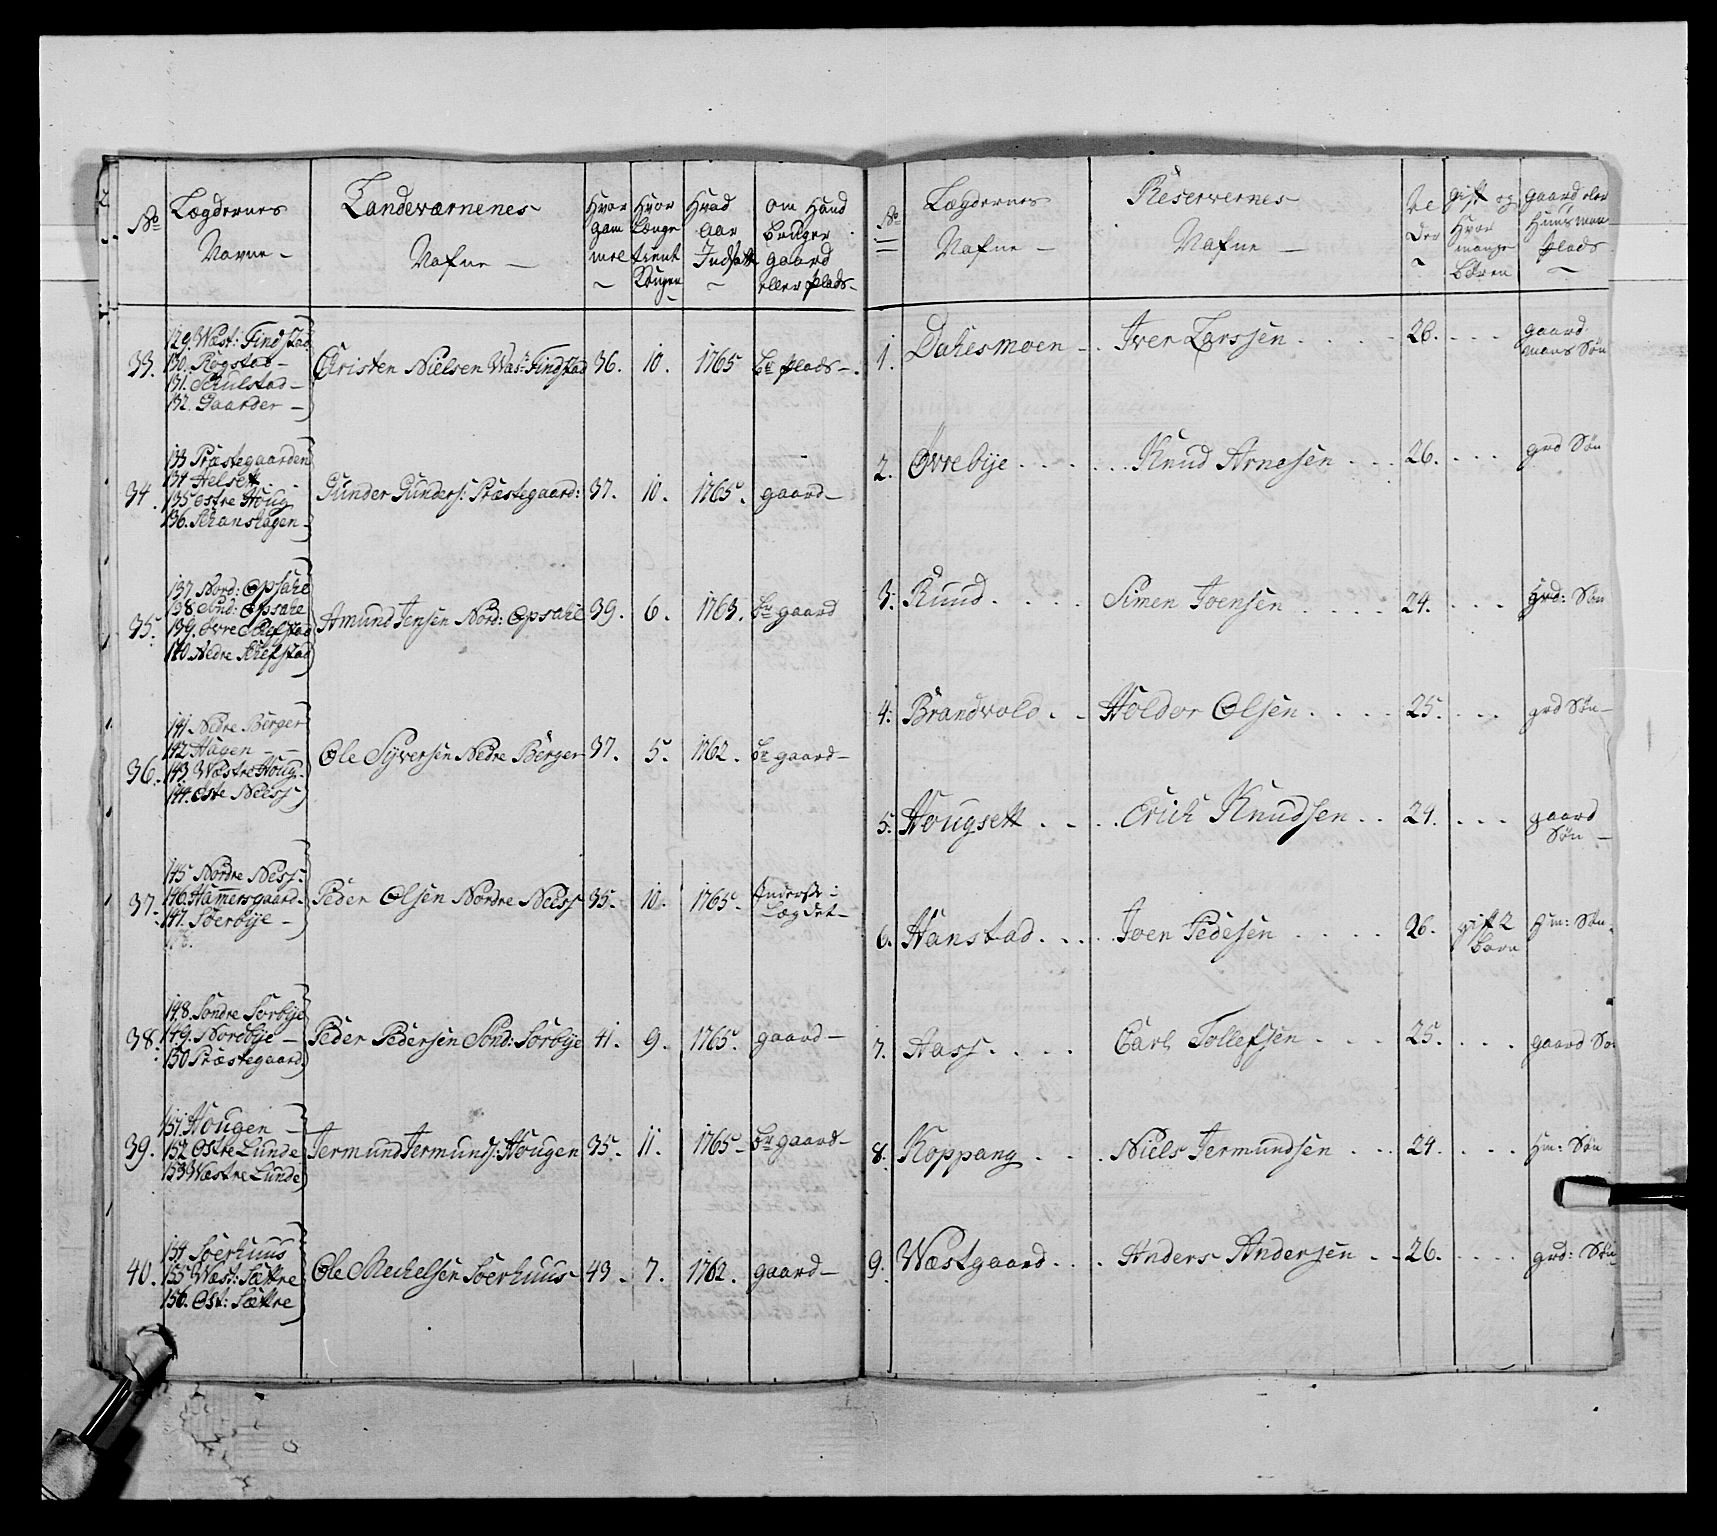 No
Lægdernes
Navne -
Landeværnenes
Nafne -
Hvor
gam
mel
Hvor
længe
tient
Kongen
Hvad
Aar
Indsatt
om Hand
bruger
gaard
eller plads -
33.
129. Wæst: Findstad
130. Rogstad -
131. Skulstad -
132. Gaarder -
Christen Nielsen Wæs: Findstad 36. 10. 1765 br plads -
34.
133 Præstegaarden
134 Helsett
135 Østre Houg
136. Skanshagen -
Gunder Gunders: Præstegaard: 37. 10. 1765. gaard -
35.
137 Nord: Opsahl
138 Sønd: Opsahl
139. Øvre Skefstad
140. Nedre Skefstad
Amund Jensen Nord: Opsahl 39. 6. 1763. br gaard
36.
141. Nedre Berger
142 Hagen - -
143. Wæstre Houg.
144. Øste Neess
Ole Syversen Nedre Berger 37. 5. 1762. br gaard -
37.
145 Nordre Ness.
146. Hamersgaard.
147. Soerbye -
Peder Olsen Nordre Neess 35. 10. 1765.
Lægdet -
38.
148. Søndre Sorbye
149. Nordbye -
150 Præstegaard.
Peder Pedersen Sønd: Sorbye 41. 9. 1765. gaard -
39.
151 Hougen -
152 Østre Lunde
153 Wæstre Lunde
Jermund Jermunds: Hougen 35. 11. 1765 - br gaard -
40.
154. Soerhuus
155 Wæst: Sættre
156. Øst: Sættre
Ole Mechelsen Soerhuus 43. 7. 1762. gaard -
No
Lægdernes
Nafne -
Reservernes
Nafne -
Al
der
gift og
Hvor
mange
børn
gaard eller
Huusman
plads
1. Dahesmoen - . Iver Larssen . . . . . 26. . . . gaard
mans Søn
2. Øvrebye . . . . . . Knud Arnesen . . . 26. . . . grd Søn
3. Ruud . . . . Simen Joensen . . . . 24. . . . grd: Søn
4. Brandvold . . Holdor Olsen . . . . 25. . . . grd Søn -
5. Hougsett . . . . Erich Knudsen . . 24. . . . gaard
Søn -
6. Hanstad . . . . Joen Pedesen . . . . 26. gift 2
børn
Hm: Søn.
7. Aass . . . . Carl Tollefsen . . . 25. . . . gaard Sø:
8. Koppang . . . Niels Jermundsen . . . 24. . . . Hm: Søn
9. Wæstgaard . . . Anders Andersen . . 26. . . . grd: Søn